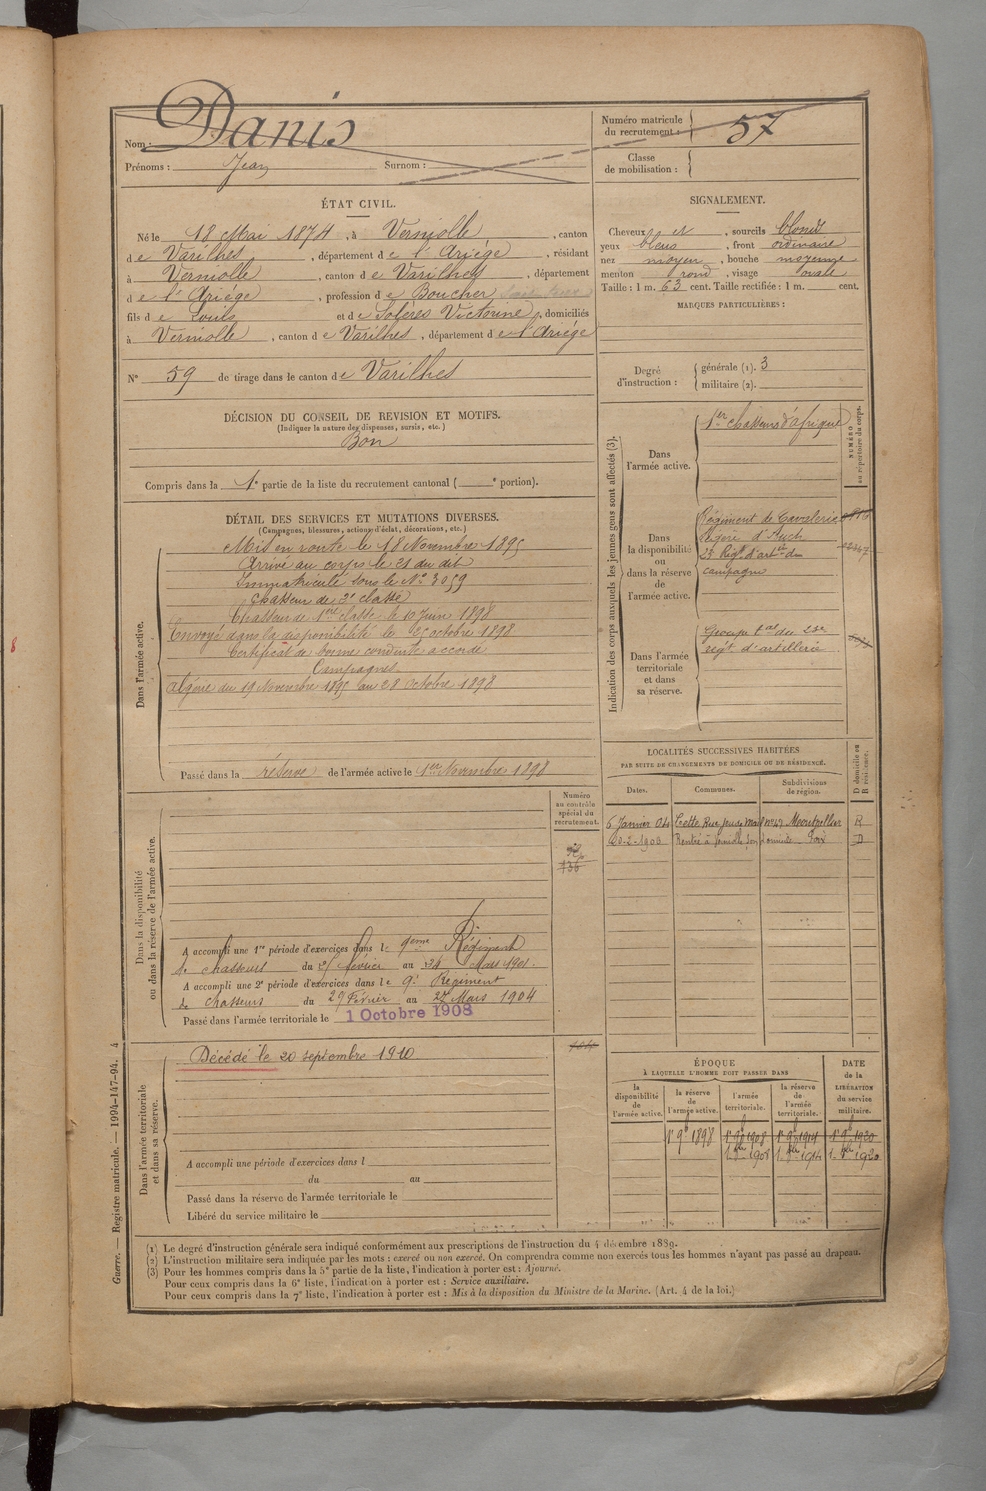 Nom : Danis
Prénoms : Jean Surnom :
Numéro matricule du recrutement : 57
Classe de mobilisation :
ÉTAT CIVIL.
Né le 18 Mai 1874, à Verniolle, canton
de Varilhes, département de l'Ariége, résidant
à Verniolle, canton de Varilhes, département
de l'Ariége, profession de Boucher
fils de Louis et de Soleres Victorine, domiciliés
à Verniolle, canton de Varilhes, département de l'Ariége
N° 59 de tirage dans le canton de Varilhes
SIGNALEMENT.
Cheveux et, sourcils blonds
yeux bleus, front ordinaire
nez moyen, bouche moyenne
menton rond, visage ovale
Taille : 1 m. 63 cent. Taille rectifiée : 1 m. cent.
MARQUES PARTICULIÈRES :
Degré d'instruction : générale (1). 3
militaire (2).
DÉCISION DU CONSEIL DE REVISION ET MOTIFS.
(Indiquer la nature des dispenses, sursis, etc.)
Bon
Compris dans la 1e partie de la liste du recrutement cantonal ( e portion).
DÉTAIL DES SERVICES ET MUTATIONS DIVERSES.
(Campagnes, blessures, actions d'éclat, décorations, etc.)
Dans l'armée active.
Mis en route le 18 Novembre 1895
Arrivé au corps le 21 du dit
Immatriculé sous le N° 3059
Chasseur de 2e classe
Chasseur de 1ere classe le 10 Juin 1898
Envoyé dans la disponibilité le 25 octobre 1898
Certificat de bonne conduite accordé
Campagnes
Algérie du 19 Novembre 1895 au 28 Octobre 1898
Passé dans la réserve de l'armée active le 1er Novembre 1898
Indication des corps auxquels les jeunes gens sont affectés (3).
NUMÉRO au répertoire du corps.
Dans l'armée active.
1er chasseurs d'afrique
Dans la disponibilité ou dans la réserve de l'armée active.
Régiment de Cavalerie
légère d'Auch
23e Régt d'artie de
campagne
Dans l'armée territoriale et dans sa réserve.
Groupe tal du 23e
régt d'artillerie
LOCALITÉS SUCCESSIVES HABITÉES
PAR SUITE DE CHANGEMENTS DE DOMICILE OU DE RÉSIDENCE.
Dates. Communes. Subdivisions de région. D domicile ou R résidence.
5 Janvier 04 Cette Rue jeu de mail n° 47 Montpellier R
Rentré à Verniolle son domicile Foix D
Dans la disponibilité ou dans la réserve de l'armée active.
Numéro au contrôle spécial du recrutement.
136
A accompli une 1re période d'exercices dans le 9eme Régiment
de chasseurs du février au Mars 1901.
A accompli une 2e période d'exercices dans le 9e Régiment
de chasseurs du 29 Février au 27 Mars 1904
Passé dans l'armée territoriale le 1 Octobre 1908
Dans l'armée territoriale et dans sa réserve.
Décédé le 20 septembre 1910
A accompli une période d'exercices dans l
du au
Passé dans la réserve de l'armée territoriale le
Libéré du service militaire le
ÉPOQUE
À LAQUELLE L'HOMME DOIT PASSER DANS
la disponibilité de l'armée active.
la réserve de l'armée active.
l'armée territoriale.
la réserve de l'armée territoriale.
DATE de la LIBÉRATION du service militaire.
1er 9b 1898 1er 9b 1908 1er 9b 1914 1er 9b 1920
1. 8bre 1908 1. 8bre 1914 1. 8bre 1920
(1) Le degré d'instruction générale sera indiqué conformément aux prescriptions de l'instruction du 4 décembre 1889.
(2) L'instruction militaire sera indiquée par les mots : exercé ou non exercé. On comprendra comme non exercés tous les hommes n'ayant pas passé au drapeau.
(3) Pour les hommes compris dans la 5e partie de la liste, l'indication à porter est : Ajourné.
Pour ceux compris dans la 6e liste, l'indication à porter est : Service auxiliaire.
Pour ceux compris dans la 7e liste, l'indication à porter est : Mis à la disposition du Ministre de la Marine. (Art. 4 de la loi.)
Guerre. — Registre matricule. — 1994-147-94. 4
8